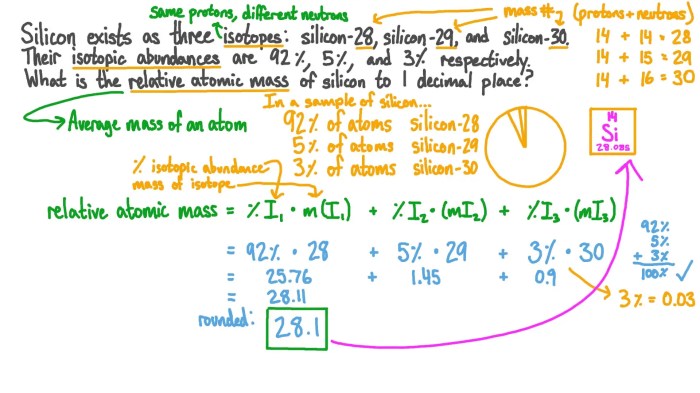 Same protons, different neutrons
mass #
(protons + neutrons)
Silicon exists as three isotopes: silicon-28, silicon-29, and silicon-30.
Their isotopic abundances are 92%, 5%, and 3% respectively.
What is the relative atomic mass of silicon to 1 decimal place?
14 + 14 = 28
14 + 15 = 29
14 + 16 = 30
Average mass of an atom
In a sample of silicon...
92% of atoms silicon-28
5% of atoms silicon-29
3% of atoms silicon-30
14
Si
28.085
% isotopic abundance
mass of isotope
relative atomic mass = %I₁ · m(I₁) + %I₂ · (mI₂) + %I₃ · (mI₃)
= 92% · 28 + 5% · 29 + 3% · 30
= 25.76 + 1.45 + 0.9
= 28.11
rounded: 28.1
92%
5%
+ 3%
100% ✓
3% = 0.03